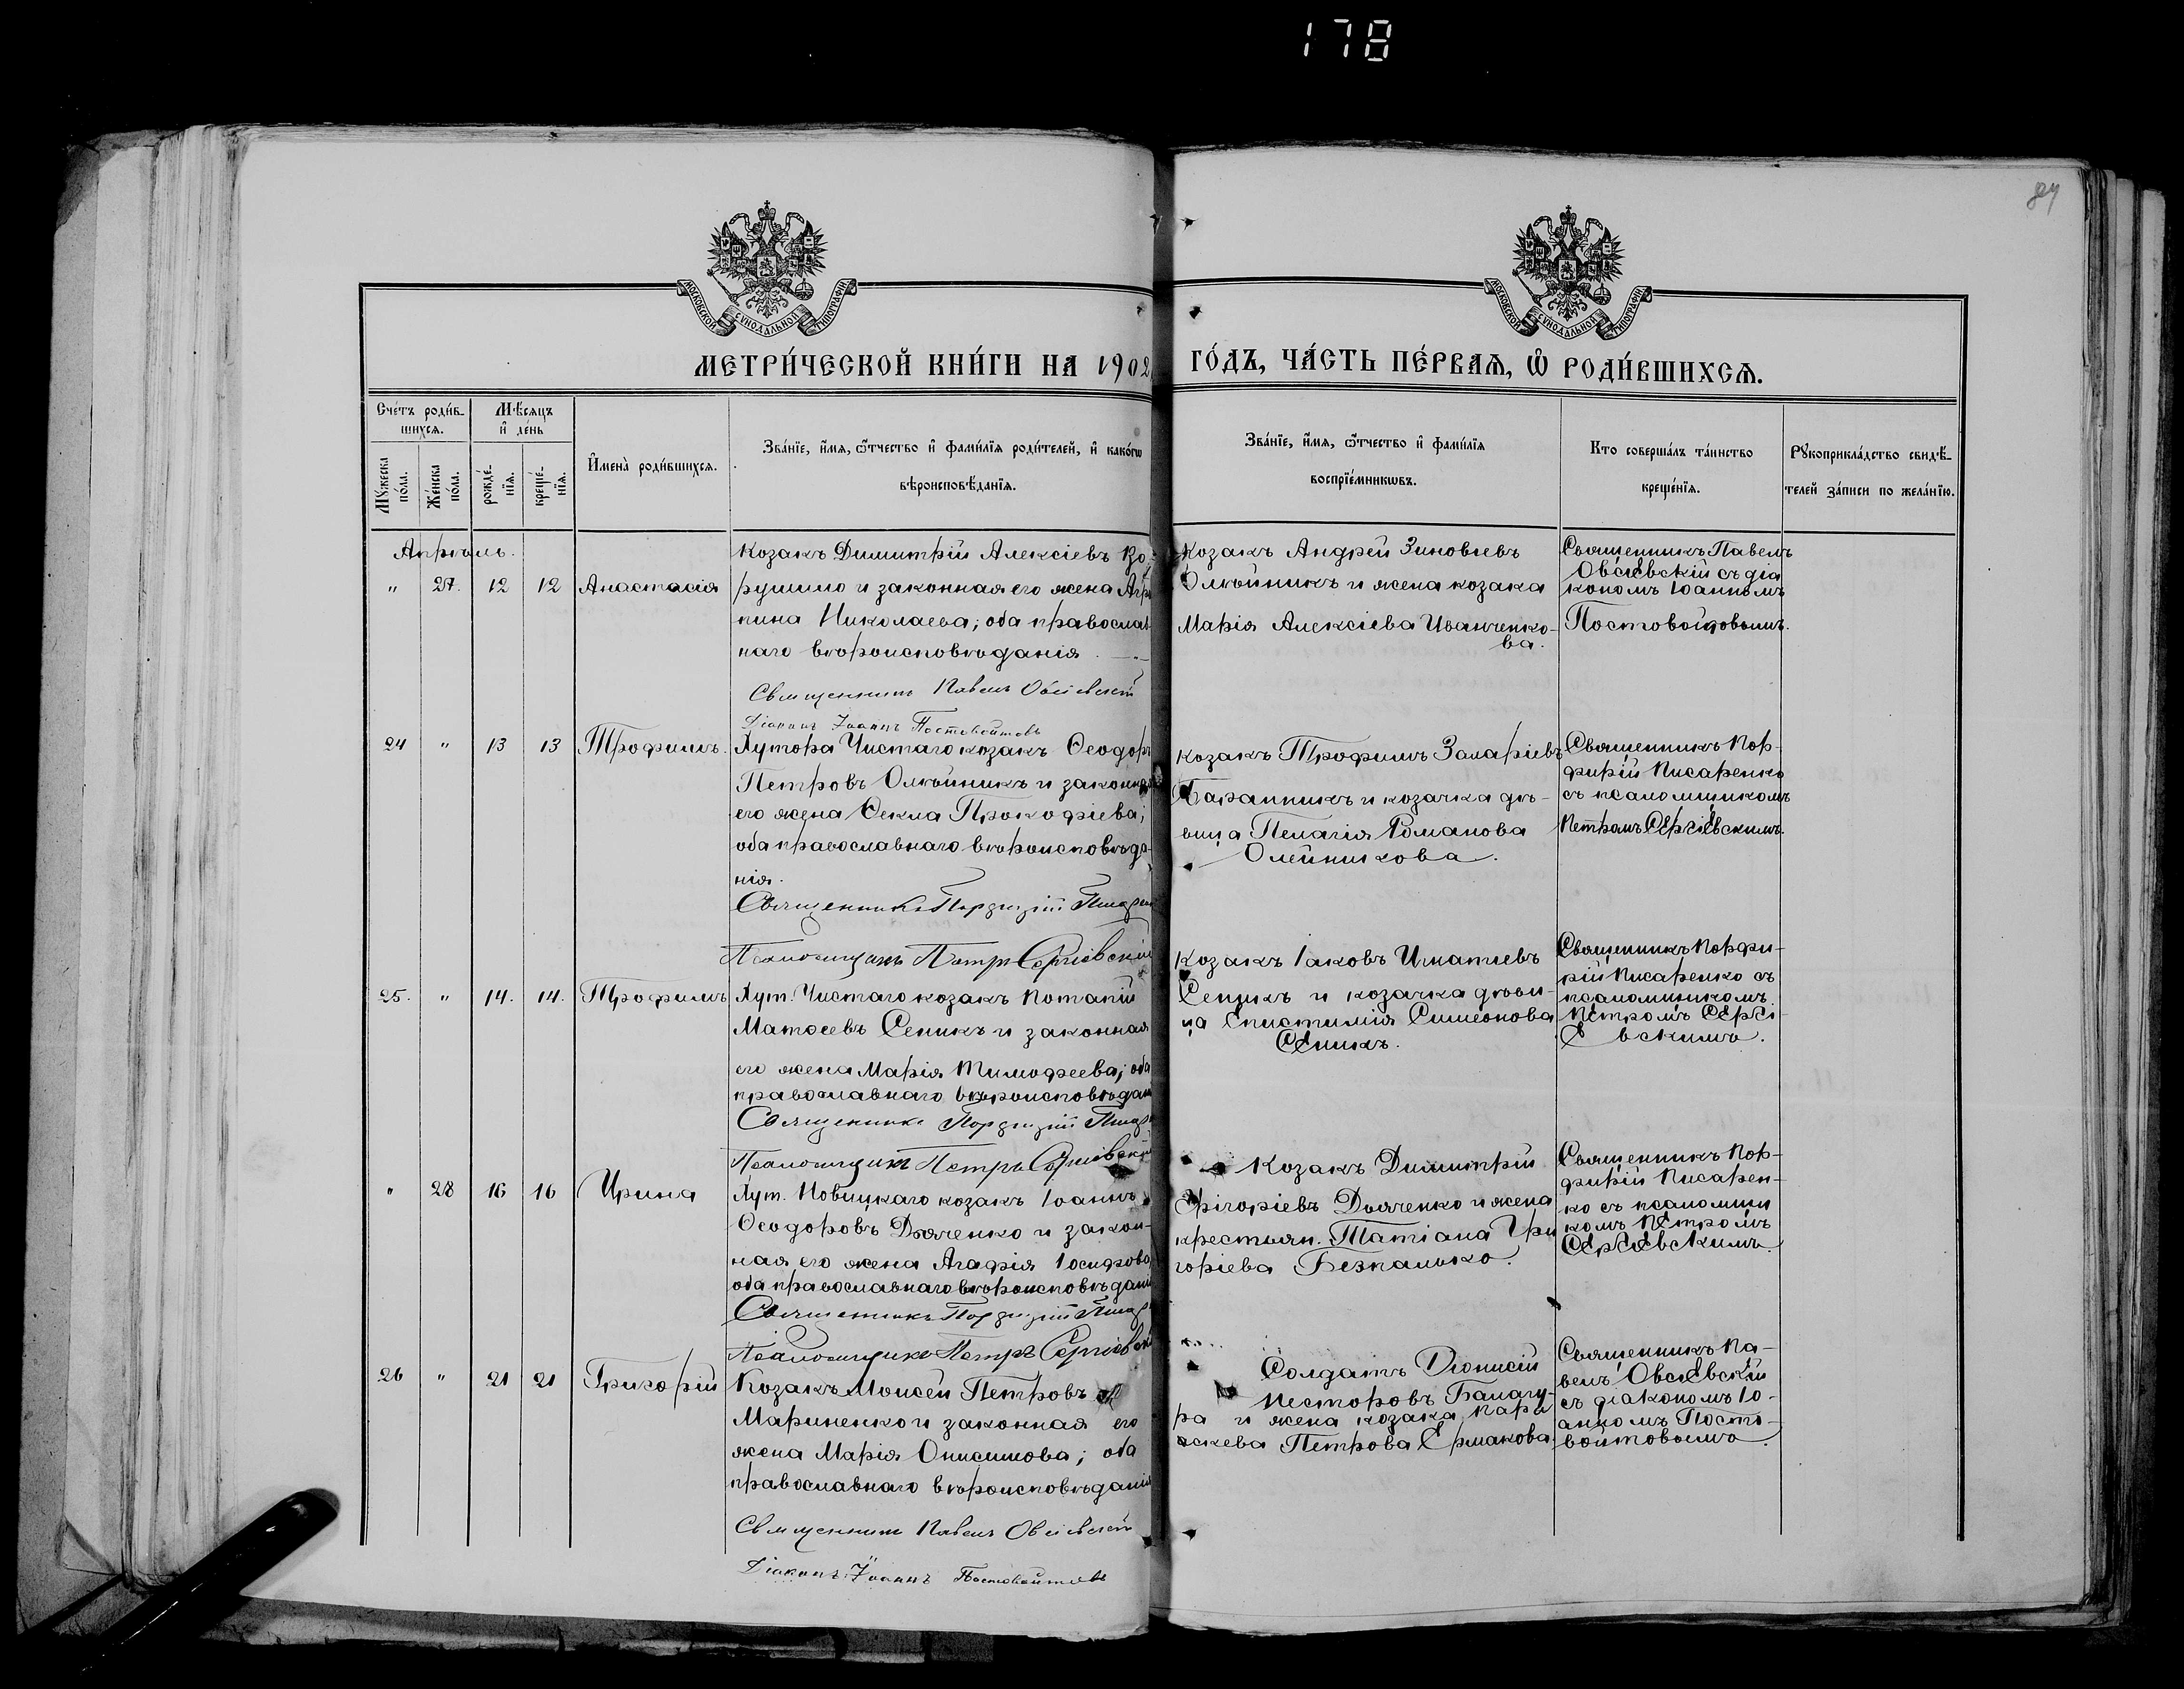 178
84
МОСКОВСКОЙ СѴНОДАЛЬНОЙ ТИПОГРАФІИ
МОСКОВСКОЙ СѴНОДАЛЬНОЙ ТИПОГРАФІИ
МЕТРИ́ЧЕСКОЙ КНИ́ГИ НА 1902 ГО́ДЪ, ЧА́СТЬ ПЕ́РВАѦ, Ѡ҆ РОДИ́ВШИХСѦ.
Сче́тъ роди́в-
шихсѧ.
Мꙋжеска по́ла.
Же́нска по́ла.
Мѣ́сѧцъ
и҆ де́нь
рожде́-
нїѧ.
креще́-
нїѧ.
И҆мена̀ роди́вшихсѧ.
Зва́нїе, и҆́мѧ, ѻ҆́тчество и҆ фами́лїѧ роди́телей, и҆ како́гѡ
вѣроисповѣ́данїѧ.
Зва́нїе, и҆́мѧ, ѻ҆́тчество и҆ фами́лїѧ
воспрїе́мникѡвъ.
Кто соверша́лъ та́инство
креще́нїѧ.
Рꙋкоприкла́дство свидѣ́-
телей за́писи по жела́нїю.
Апрѣль.
" 27. 12 12 Анастасія
Козакъ Димитрій Алексіевъ Ко-
рушило и законная его жена Агри
пина Николаева; оба православ
наго вѣроисповѣданія.
Священникъ Павелъ Овсіевскій
Діаконъ Іоаннъ Постовойтовъ
Козакъ Андрей Зиновіевъ
Олѣйникъ и жена козака
Марія Алексіева Иванченко-
ва.
Священникъ Павелъ
Овсіевскій съ діа
кономъ Іоанномъ
Постовойтовымъ.
24 " 13 13 Трофимъ.
Хутора Чистаго козакъ Ѳеодоръ
Петровъ Олѣйникъ и законная
его жена Ѳекла Прокофіева;
оба православнаго вѣроисповѣда-
нія.
Священникъ Порфирій Писарен
Псаломщикъ Петръ Сергіевскій
Козакъ Трофимъ Захаріевъ
Баранникъ и козачка дѣ-
вица Пелагія Романова
Олейникова.
Священникъ Пор-
фирій Писаренко
съ псаломщикомъ
Петромъ Сергіевскимъ.
25. " 14. 14. Трофимъ
Хут. Чистаго козакъ Потапій
Матѳеевъ Сепикъ и законная
его жена Марія Тимофеева; оба
православнаго вѣроисповѣдан
Священникъ Порфирій Писар
Псаломщикъ Петръ Сергіевскій
Козакъ Іаковъ Игнатіевъ
Сепикъ и козачка дѣви-
ца Епистимія Симеонова
Сепикъ.
Священникъ Порфи-
рій Писаренко съ
псаломщикомъ
Петромъ Сергі-
евскимъ.
" 28 16 16 Ирина
Хут. Новицкаго козакъ Іоаннъ
Ѳеодоровъ Дьяченко и закон-
ная его жена Агафія Іосифова
оба православнаго вѣроисповѣдані
Священникъ Порфирій Писар
Псаломщикъ Петръ Сергіевск
Козакъ Димитрій
Григоріевъ Дьяченко и жена
крестьян. Татіана Гри
горіева Безпалько.
Священникъ Пор-
фирій Писарен-
ко съ псаломщи
комъ Петромъ
Сергіевскимъ.
26 " 21 21 Григорій
Козакъ Моисей Петровъ
Мариненко и законная его
жена Марія Онисимова; оба
православнаго вѣроисповѣданія
Священникъ Павелъ Овсіевскій
Діаконъ Іоаннъ Постовойтовъ
Солдатъ Діонисій
Несторовъ Балагу-
ра и жена козака Пара
скева Петрова Ермакова.
Священникъ Па-
велъ Овсіевскій
съ діакономъ Іо-
анномъ Посто-
войтовымъ.